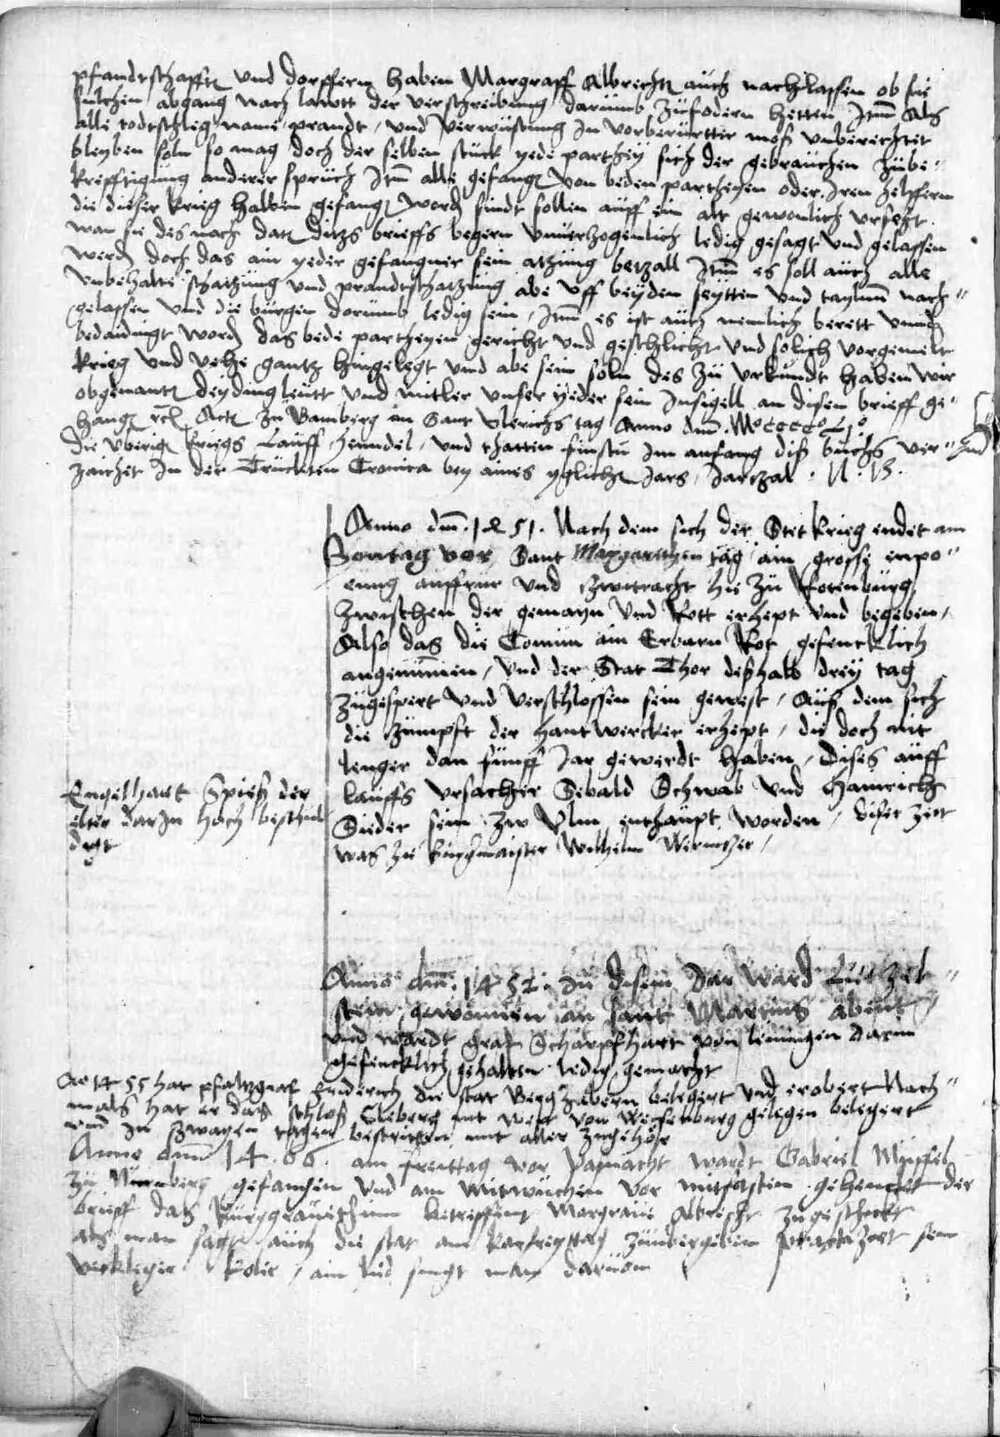 pfandtschafft und dorffern haben Margraff Albrecht auch nachlassen ob sie
sulchen abgang nach lawtt der verschreibung darumb zufodern hetten Item Als
alle todtschleg name prandt / und verwustung In vorberurtter mess unberechtet
bleyben soln so mag doch der selben stuck yede parthey sich der gebrauchen zube-
krefftigung anderer spruch Item alle gefangen von beden partheyen oder Iren helffern
die dieser krieg halben gefangen worden sindt sollen auff ein alt gewonlich urfeht
wan sie des nach datt ditzs brieffs begern unverzogenlich ledig gesagt und gelassen
werden doch das ain yeder gefangner sein atzung betzall Item es soll auch alle
unbetzalte schatzung und prandtschatzung abe uff beyden seytten und nach-
gelassen und die burgen dorumb ledig sein / Item es ist auch nemlich berett unnd
bedaidingt worden das bede partheyen gericht und geschlicht und solich vorgemelt
krieg und vehe gantz hingelegt und abe sein soln des zu urkundt haben wir
obgenanten deydingsleutt und mitler unser yeder sein Insigell an disen brieff ge-
hangen Actum zu Bamberg an Sant Ulrichs tag Anno dm. Mo cccco Lo
die uberigen kriegs lauff hendel / und thatten findstu im anfang diss buchs ver-
zaichet In der Truckten Cronica bey aines yglichen Jars Jartzal . N . B .
Anno dm. 1451. Nach dem sich der Stet krieg endet am
Sontag vor Sant Margarethen tag ain grosse enpo-
rung auffrur und zwitracht hie zu Rotenburg
zwischen der gemayn und Rott erhept und begeben /
Also das die Comun ain Erbarn Rot gefencklich
angenummen / und der Stat Thor desshalb drey tag
zugespert und verschlossen sein gewest / Auss dem sich
die zumpft der hantwercker erhept / die doch nit
lenger dan funff Jar gewerdt haben / Dises auff
lauffs ursacher Sebald Schwab und Hainrich
Sieder sein zw Ulm enthaupt worden / diser zeit
was zu burgmaister Wilhelm Wernitzer /
Engelhart Spiess der
elter dar In hoch beschul
digt
Anno dm. 1452. In disem Jar ward Lutzel-
stein gewonnen an sant Martins abent
und wardt graf Scharpfhart von leiningen darin
gefencklich gehalten ledig gemacht
Ao 1455 hat pfaltzgraf Friderich die stat Berg Zabern belegert und erobert Nach-
mals hat er das schloss Cleberg nit weit von Weyssenburg gelegen belegert
und in zwayen tagen bestritten mit aller zugehör
Anno dm 14.66. am freittag vor vasnacht wardt Gabriel Muffel
zu Nurmberg gefangen und am mitwuchen vor mitfasten gehenckt der
brieff das Burggravithum betreffent Margrave Albrecht zugeschickt
als man sagt auch die stat am karfreyttag zuubergeben sein
verkleger / ain lied singt man darvon